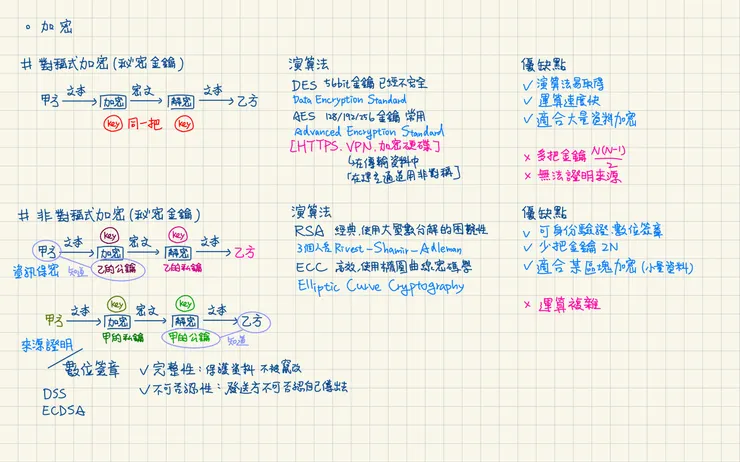 。加密
# 對稱式加密(秘密金鑰)
甲方 文本 加密 密文 解密 文本 乙方
key 同一把 key
演算法
DES 56bit金鑰 已經不安全
Data Encryption Standard
AES 128/192/256金鑰 常用
Advanced Encryption Standard
[HTTPS、VPN、加密硬碟]
在傳輸資料中
「在建立通道用非對稱」
優缺點
✓ 演算法易取得
✓ 運算速度快
✓ 適合大量資料加密
× 多把金鑰 N(N-1)/2
× 無法證明來源
# 非對稱式加密(秘密金鑰)
key key
甲方 文本 加密 密文 解密 文本 乙方
資訊保密 知道 乙的公鑰 乙的私鑰
key key
甲方 文本 加密 密文 解密 文本 乙方
甲的私鑰 甲的公鑰 知道
來源證明
數位簽章
✓ 完整性:保護資料 不被竄改
✓ 不可否認性:發送方不可否認自己傳出去
DSS
ECDSA
演算法
RSA 經典,使用大質數分解的困難性
3個人名 Rivest-Shamir-Adleman
ECC 高效,使用橢圓曲線密碼學
Elliptic Curve Cryptography
優缺點
✓ 可身份驗證、數位簽章
✓ 少把金鑰 2N
✓ 適合某區塊加密(小量資料)
× 運算複雜